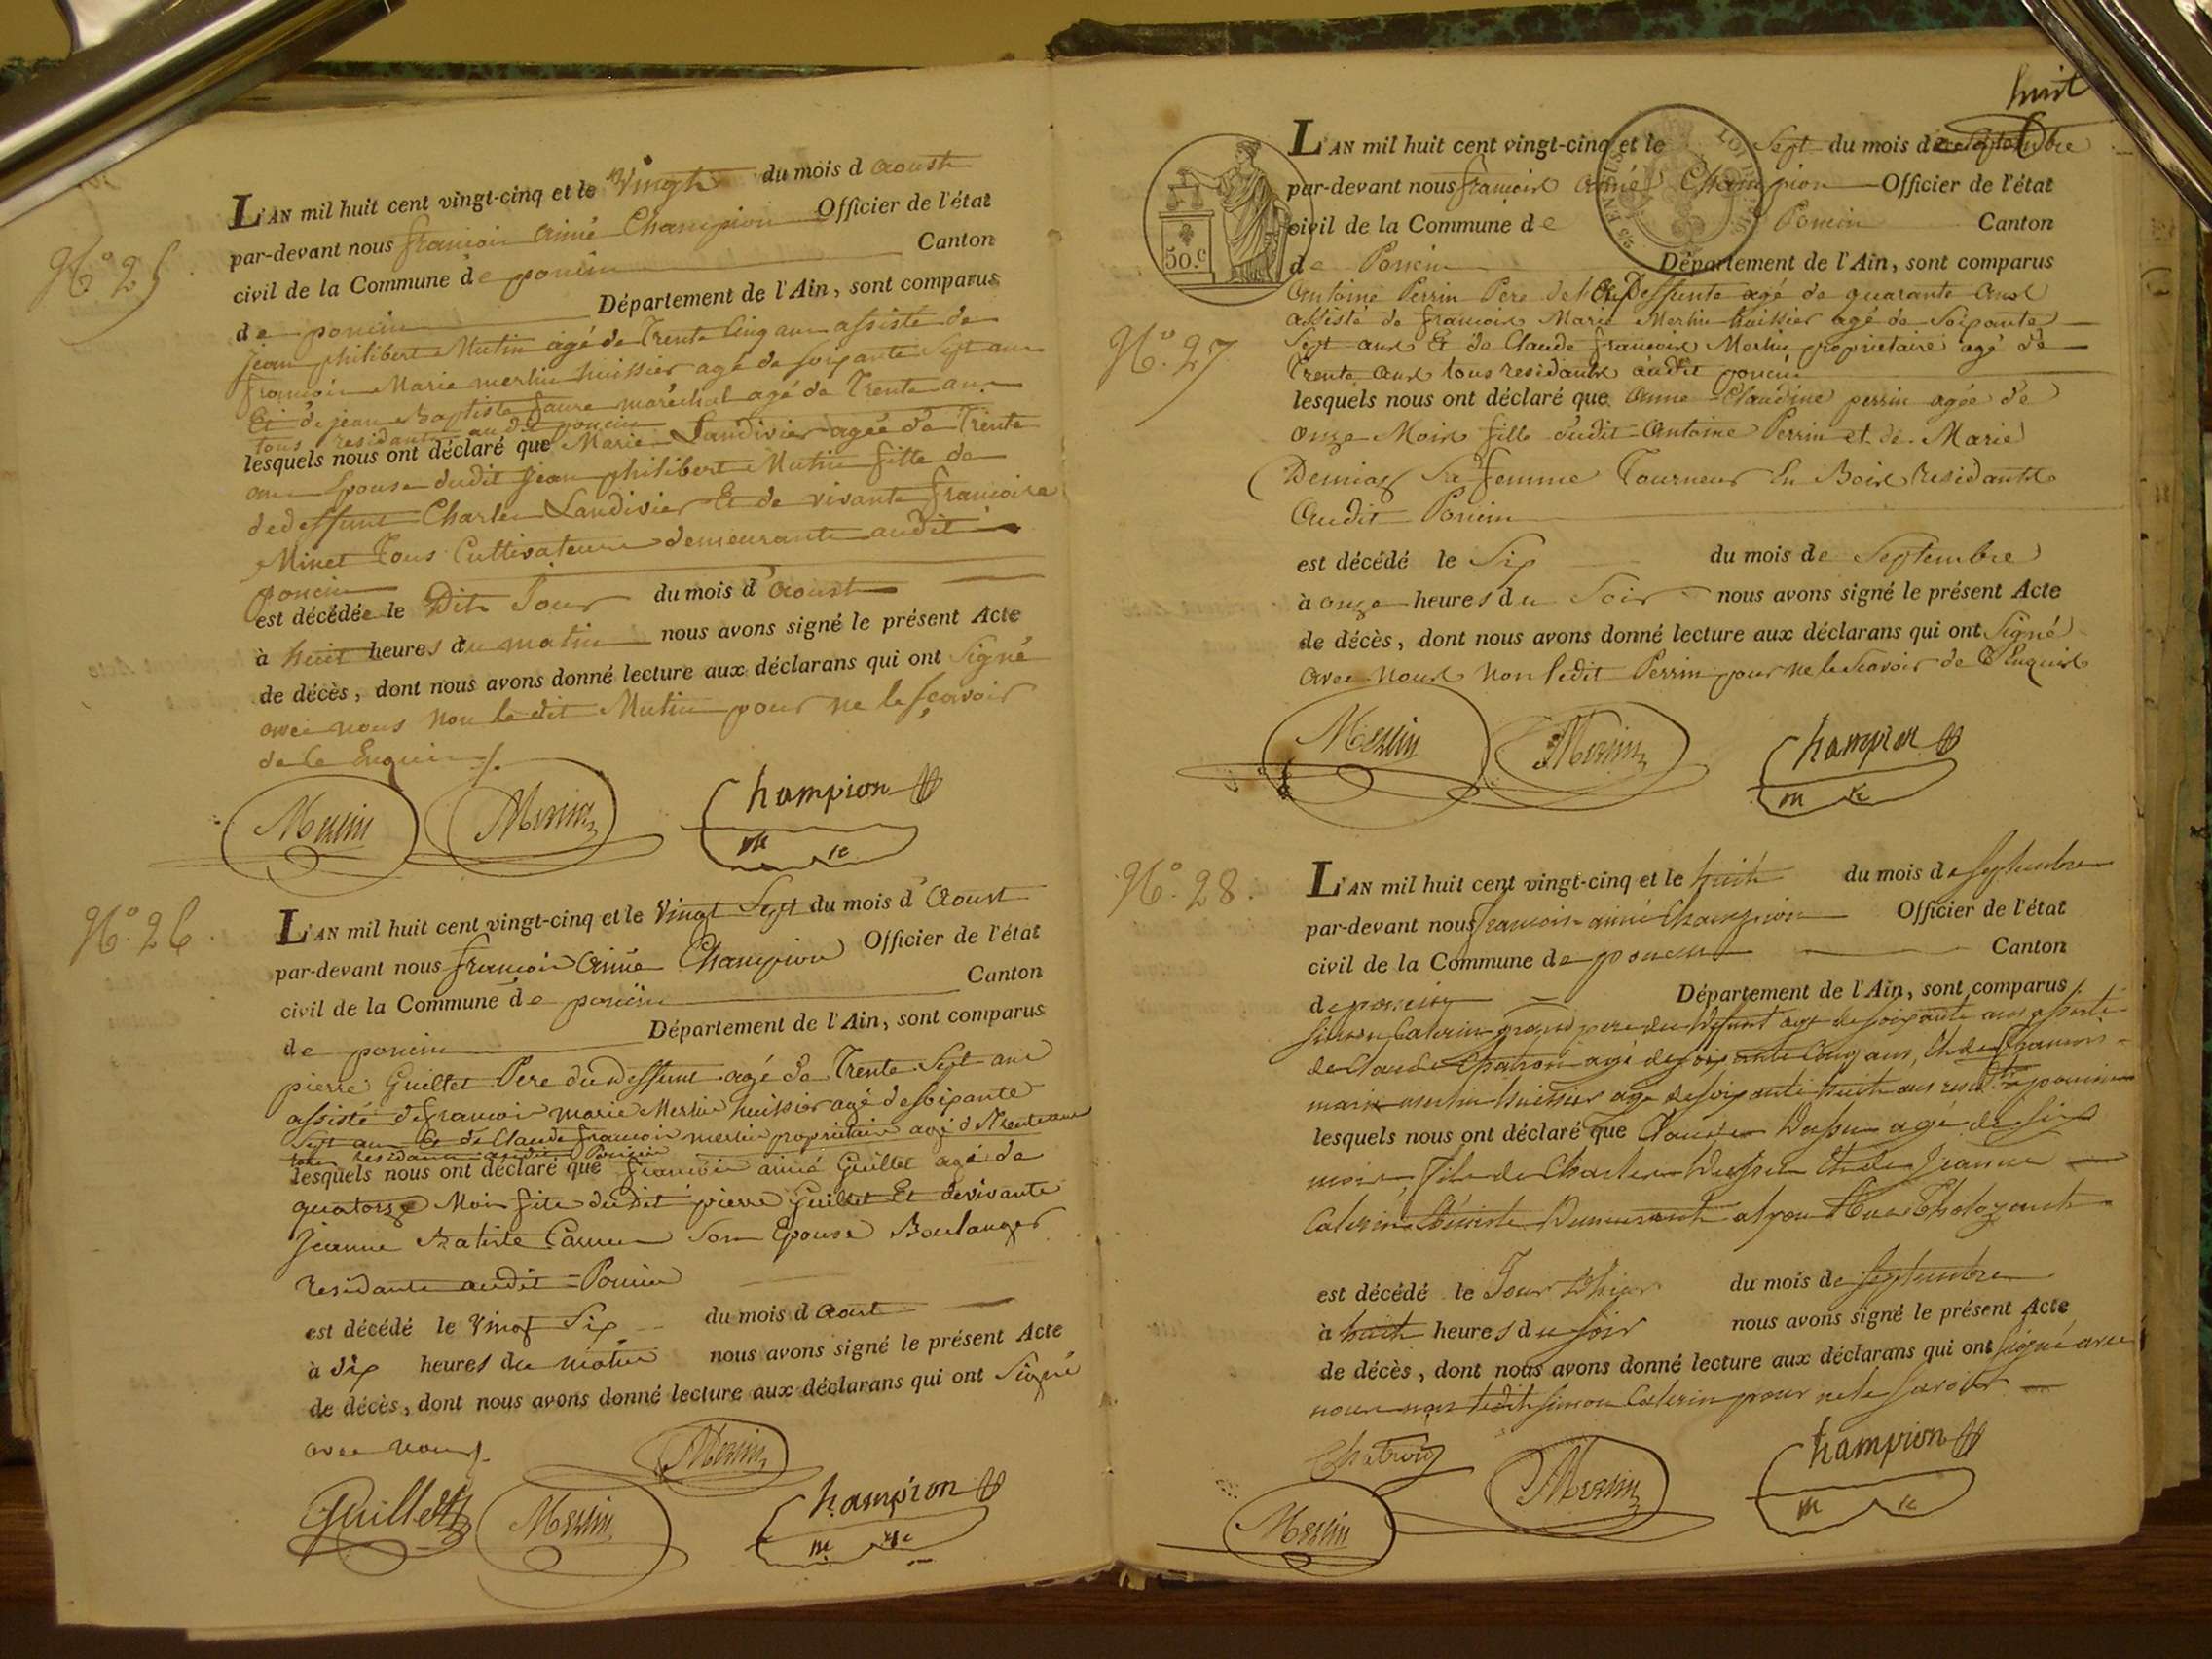 N.º 25
L'AN mil huit cent vingt-cinq et le Vingt du mois d aoust
par-devant nous françois aimé Champion Officier de l'état
civil de la Commune de poncin Canton
de poncin Département de l'Ain, sont comparus
Jean philibert Mutin agé de Trente Cinq ans assisté de
françois Marie merlin huissier agé de soixante Sept ans
Et de jean Baptiste faure maréchal agé de Trente ans
tous residants audit poncin
lesquels nous ont déclaré que Marie Landivier agée de Trente
ans Epouse dudit Jean philibert Mutin fille de
dedeffunt Charles Landivier Et de vivante françoise
Minet Tous Cultivateurs demeurants audit
poncin
est décédée le Dit Jour du mois d'aoust
à huit heures du matin nous avons signé le présent Acte
de décès, dont nous avons donné lecture aux déclarans qui ont signé
avec nous Non le dit Mutin pour ne le sçavoir
de ce Enquis
Merlin Merlin Champion
N.º 26
L'AN mil huit cent vingt-cinq et le Vingt Sept du mois d'Aoust
par-devant nous françois Aimé Champion Officier de l'état
civil de la Commune de poncin Canton
de poncin Département de l'Ain, sont comparus
pierre Guillet Pere du Deffunt agé de Trente Sept ans
assisté de françois marie Merlin huissier agé de soixante
Sept ans Et de Claude françois merlin proprietaire agé de Trente ans
tous residants audit Poncin
lesquels nous ont déclaré que françois aimé Guillet agé de
quatorze Mois fils dudit pierre Guillet Et de vivante
Jeanne Batiste son Epouse Boulanger
residants audit Poncin
est décédé le Vingt Six du mois d Aout
à dix heures du matin nous avons signé le présent Acte
de décès, dont nous avons donné lecture aux déclarans qui ont Signé
avec nous
Merlin
Guillet Merlin Champion
huit
50.c
N.º 27
L'AN mil huit cent vingt-cinq et le Sept du mois de Septembre
par-devant nous françois Aimé Champion Officier de l'état
civil de la Commune de Poncin Canton
de Poncin Département de l'Ain, sont comparus
Antoine Perrin Pere de la Deffunte agé de quarante Ans
assisté de françois Marie Merlin huissier agé de Soixante
Sept ans Et de Claude françois Merlin proprietaire agé de
Trente ans tous residants audit poncin
lesquels nous ont déclaré que Anne Claudine perrin agée de
onze Mois fille dudit Antoine Perrin et de Marie
Demias sa femme Tourneur En Bois residants
Audit Poncin
est décédé le Six du mois de Septembre
à onze heures du Soir nous avons signé le présent Acte
de décès, dont nous avons donné lecture aux déclarans qui ont Signé
avec nous non ledit Perrin pour ne le scavoir de Enquis
Merlin Merlin Champion
N.º 28.
L'AN mil huit cent vingt-cinq et le huit du mois de septembre
par-devant nous françois aimé Champion Officier de l'état
civil de la Commune de poncin Canton
de poncin Département de l'Ain, sont comparus
simon Caterin grand pere du defunt agé de soixante ans assisté
de Claude Chatron agé de soixante Cinq ans, Et de françois
marie merlin huissier agé de soixante huit ans poncin
lesquels nous ont déclaré que Claude agé de six
mois, fils de Charles Et de Jeanne
Caterin
est décédé le Jour d'hier du mois de septembre
à huit heures du soir nous avons signé le présent Acte
de décès, dont nous avons donné lecture aux déclarans qui ont signé avec
nous non ledit simon Caterin pour ne le savoir
Chatron Merlin Champion
Merlin